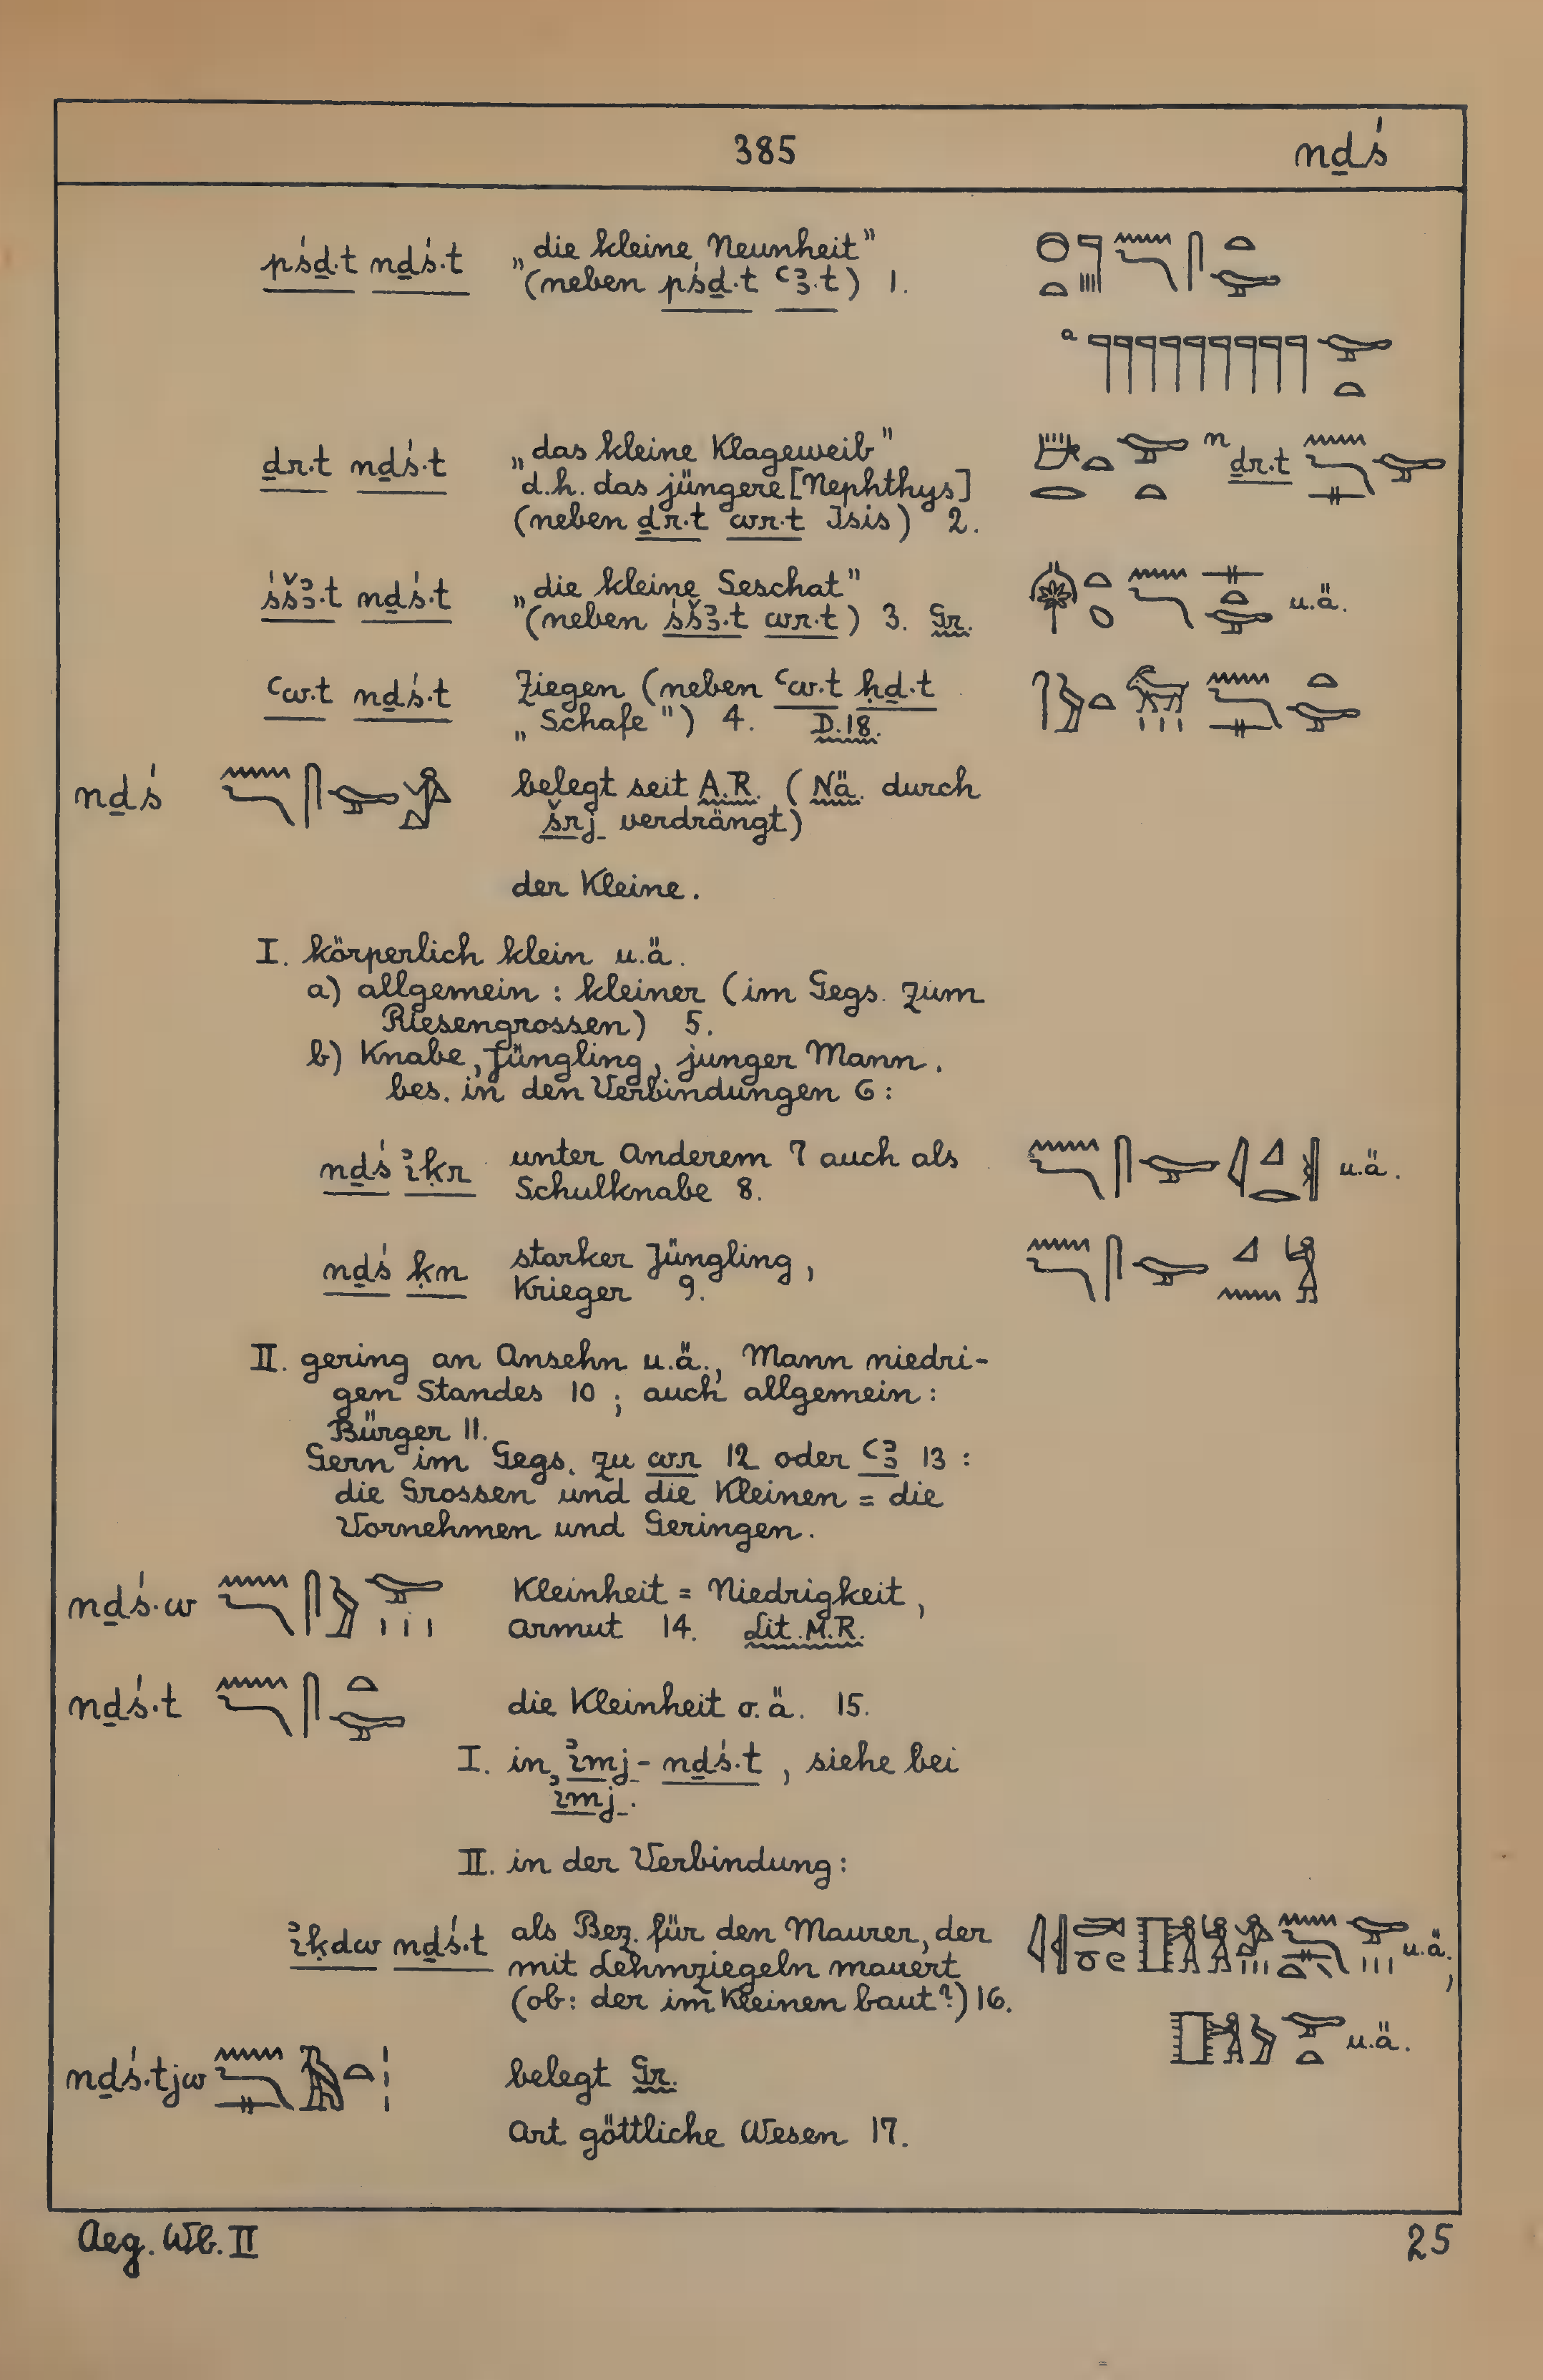 385 nḏś
pśḏ·t nḏś·t „die kleine Neunheit”
(neben pśḏ·t ꜥꜣ·t) 1.
a
ḏr·t nḏś·t „das kleine Klageweib” n ḏr·t
d.h. das jüngere [Nephthys]
(neben ḏr·t wr·t Isis) 2.
śšꜣ·t nḏś·t „die kleine Seschat” u.ä.
(neben śšꜣ·t wr·t) 3. Gr.
ꜥw·t nḏś·t Ziegen (neben ꜥw·t ḥḏ·t
„Schafe”) 4. D.18.
nḏś belegt seit A.R. (Nä. durch
šrj verdrängt)
der Kleine.
I. körperlich klein u.ä.
a) allgemein: kleiner (im Gegs. zum
Riesengrossen) 5.
b) Knabe, Jüngling, junger Mann.
bes. in den Verbindungen 6:
nḏś ꞽḳr unter Anderem 7 auch als u.ä.
Schulknabe 8.
nḏś ḳn starker Jüngling,
Krieger 9.
II. gering an Ansehn u.ä., Mann niedri-
gen Standes 10; auch allgemein:
Bürger 11.
Gern im Gegs. zu wr 12 oder ꜥꜣ 13:
die Grossen und die Kleinen = die
Vornehmen und Geringen.
nḏś·w Kleinheit = Niedrigkeit,
Armut 14. Lit. M.R.
nḏś·t die Kleinheit o.ä. 15.
I. in ꞽmj-nḏś·t, siehe bei
ꞽmj.
II. in der Verbindung:
ꞽḳdw nḏś·t als Bez. für den Maurer, der u.ä.,
mit Lehmziegeln mauert
(ob: der im Kleinen baut?) 16.
u.ä.
nḏś·tjw belegt Gr.
Art göttliche Wesen 17.
Aeg. Wb. II 25